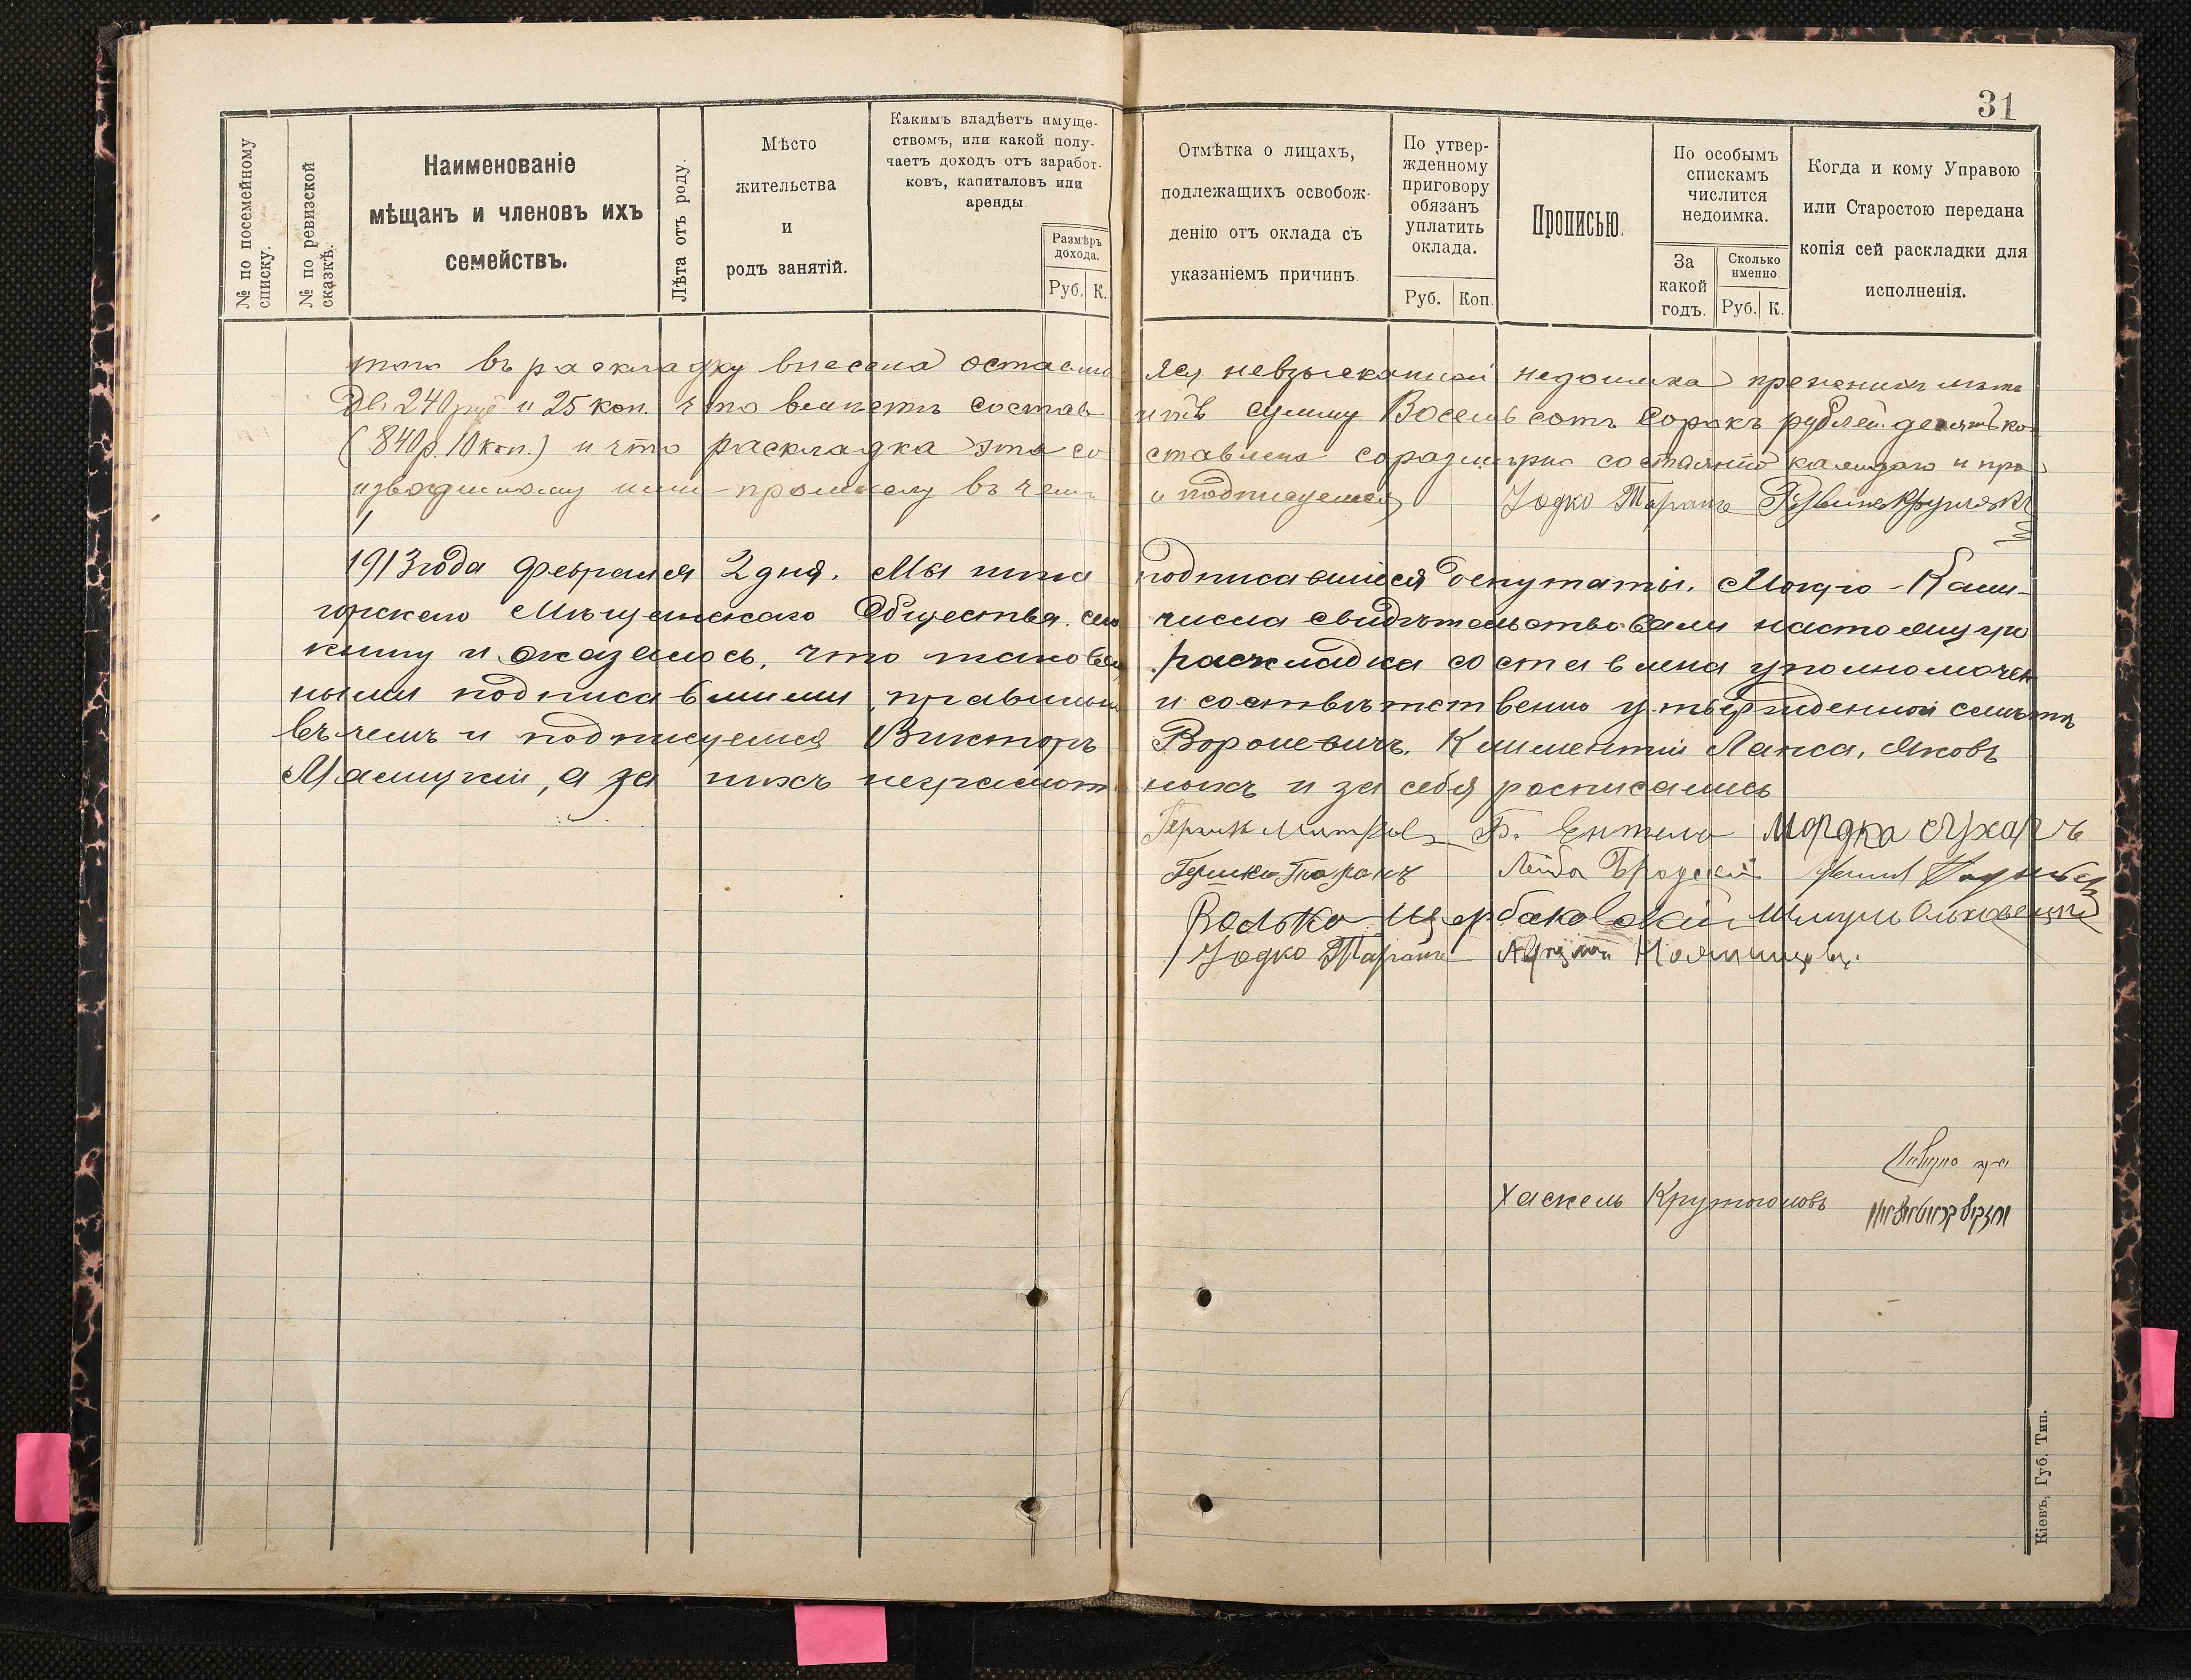 31
№ по посемейному списку.
№ по ревизской сказкѣ.
Наименованіе
мѣщанъ и членовъ ихъ
семействъ.
Лѣта отъ роду.
Мѣсто
жительства
и
родъ занятій.
Какимъ владѣетъ имуще-
ствомъ, или какой полу-
чаетъ доходъ отъ заработ-
ковъ, капиталовъ или
аренды.
Размѣръ
дохода.
Руб. К.
Отмѣтка о лицахъ,
подлежащихъ освобож-
денію отъ оклада съ
указаніемъ причинъ.
По утвер-
жденному
приговору
обязанъ
уплатить
оклада.
Руб. Коп.
Прописью.
По особымъ
спискамъ
числится
недоимка.
За
какой
годъ.
Сколько
именно.
Руб. К.
Когда и кому Управою
или Старостою передана
копія сей раскладки для
исполненія.
въ раскладку внесена оставшаяся невзысканной недоимка прежнихъ лѣтъ
240 руб и 25 коп. что вмѣстѣ составитъ сумму Восемьсотъ Сорокъ рублей десять ко
(840 р. 10 коп.) и что раскладка эта составлена соразмѣрно состоянію каждаго и про
изводимому ими промыслу въ чемъ и подписуемся Іодко Таранъ
1913 года февраля 2 дня. Мы ниже подписавшіеся депутаты, Мокро-Кали-
горскаго Мѣщанскаго Общества, сего числа свидѣтельствовали настоящую
книгу и оказалось, что таковая раскладка составлена уполномочен
ными подписавшими, правильно и соотвѣтственно утвержденной смѣтѣ
въ чемъ и подписуемся Викторъ Вороневичъ, Климентій Лапса, Яковъ
а за нихъ неграмотныхъ и за себя росписались
Мордка Сухарь
Гершко Таранъ Лейба Бродскій
Волько Щербаковскій Шмуль Ольховецкій
Іодко Таранъ
Хаскель Крутоголовъ
חזקיל קרוטאגאלאוו
Кіевъ, Губ. Тип.